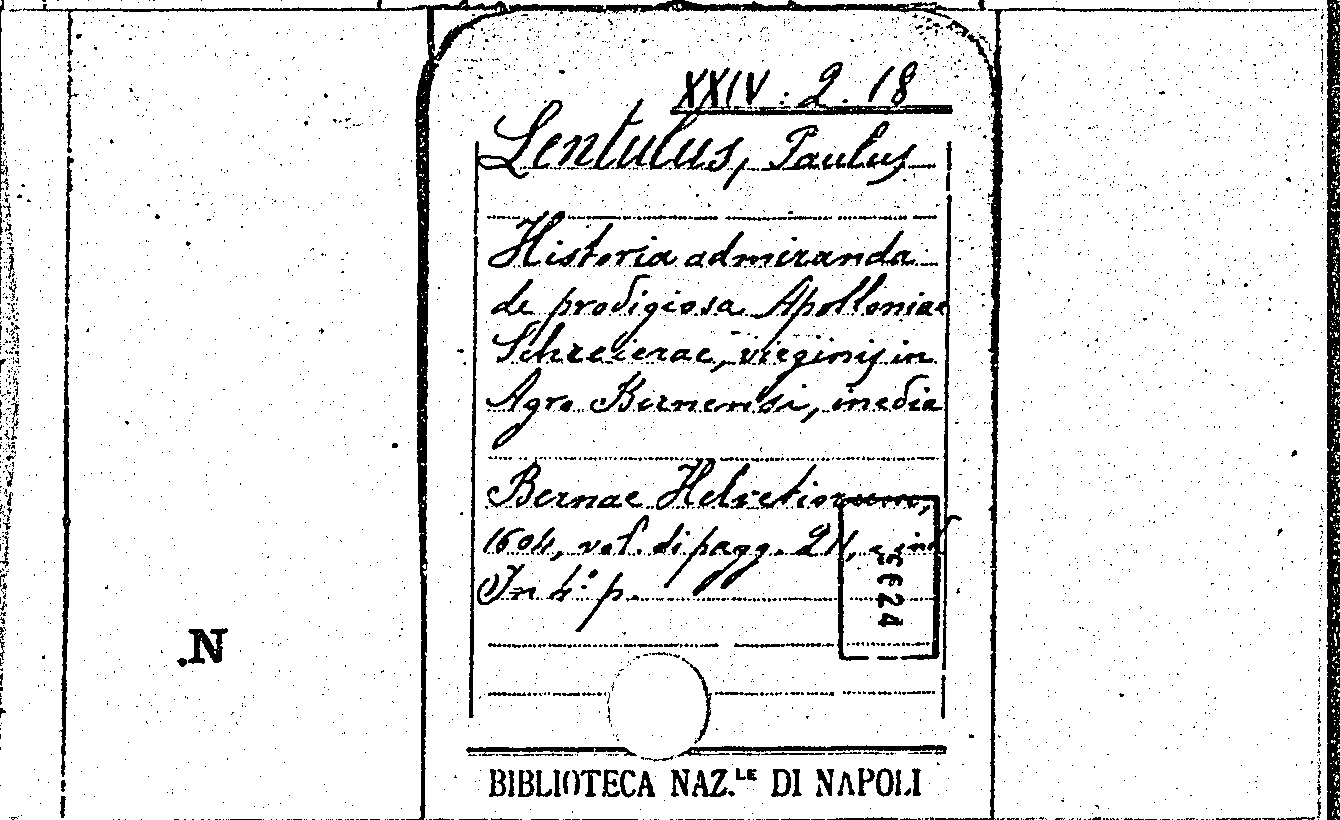 XXIV. 2. 18
Lentulus, Paulus
Historia admiranda
de prodigiosa Apolloniae
Schreierae, virginis in
Agro Bernensi, inedia
Bernae Helvetiorum,
1604, vol. di pagg. 211, e ind
In 4.° p.
N.
BIBLIOTECA NAZ.LE DI NAPOLI